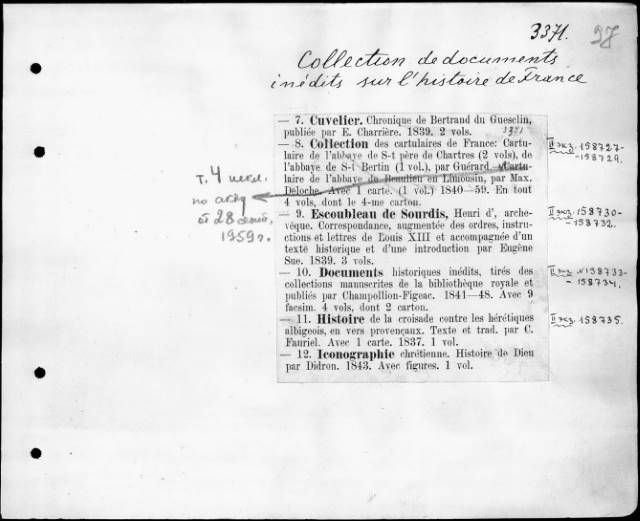 3371. 37
Collection de documents
inédits sur l'histoire de France
— 7. Cuvelier. Chronique de Bertrand du Guesclin,
publiée par E. Charrière. 1839. 2 vols. 3371
— 8. Collection des cartulaires de France: Cartu-
laire de l'abbaye de S-t père de Chartres (2 vols), de
l'abbaye de S-t Bertin (1 vol.), par Guérard. Cartu-
laire de l'abbaye de Beaulieu en Limousin, par Max.
Deloche. Avec 1 carte. (1 vol.) 1840—59. En tout
4 vols, dont le 4-me carton.
— 9. Escoubleau de Sourdis, Henri d', arche-
vêque. Correspondance, augmentée des ordres, instru-
ctions et lettres de Louis XIII et accompagnée d'un
texte historique et d'une introduction par Eugène
Sue. 1839. 3 vols.
— 10. Documents historiques inédits, tirés des
collections manuscrites de la bibliothèque royale et
publiés par Champollion-Figeac. 1841—48. Avec 9
facsim. 4 vols, dont 2 carton.
— 11. Histoire de la croisade contre les hérétiques
albigeois, en vers provençaux. Texte et trad. par C.
Fauriel. Avec 1 carte. 1837. 1 vol.
— 12. Iconographie chrétienne. Histoire de Dieu
par Didron. 1843. Avec figures. 1 vol.
т. 4 искл.
по акту
от 28 сент.
1959 г.
II экз. 158727-
-158729.
II экз. 158730-
-158732.
II экз. №158733-
-158734.
II экз. 158735.